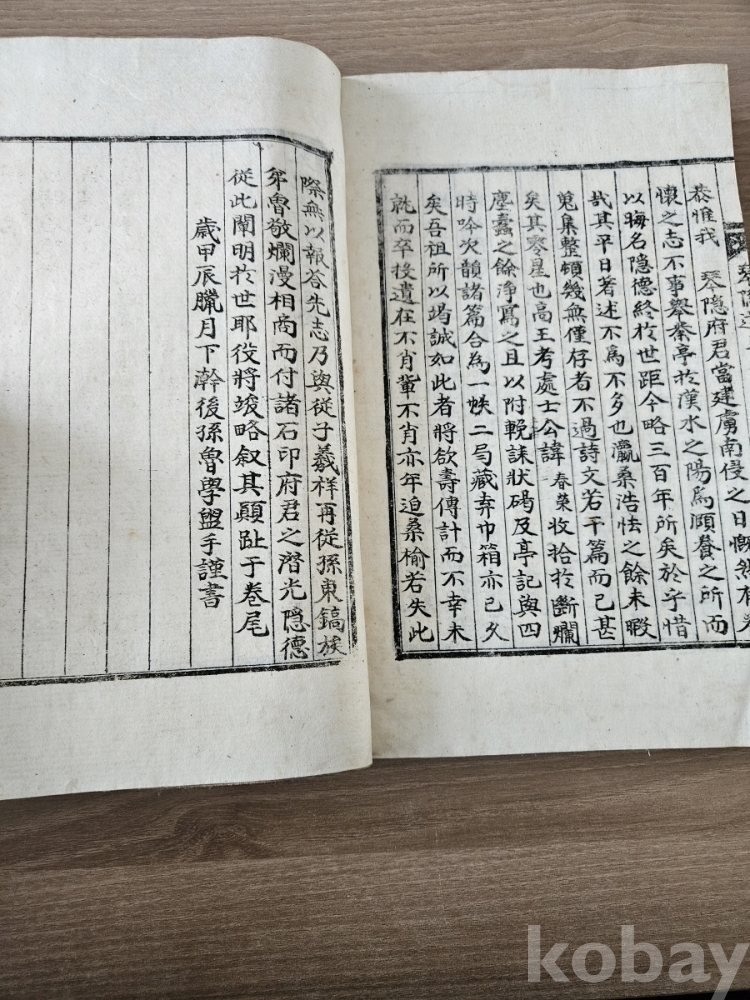 恭惟我 琴隐府君當建虜南侵之日慨然有
懷之志不事擧業築亭於漢水之陽爲頤養之所而
以晦名隐德終於世距今略三百年所矣於乎惜
哉其平日著述不爲不多也瀛桑浩怯之餘未暇
蒐集整頓幾無僅存者不過詩文若干篇而已甚
矣其零星也高王考處士公諱春榮收拾於斷爛
塵蠹之餘淨寫之且以附輓誄狀碣及亭記與四
時吟次韻諸篇合為一帙二局藏弆巾箱亦已久
矣吾祖所以竭誠如此者將欲壽傳計而不幸未
就而卒投遺在不肖輩不肖亦年迫桑榆若失此
際無以報答先志乃與從子羲祥再從孫東鎬族
弟魯敬爛漫相商而付諸石印府君之潛光隐德
從此闡明於世耶役將竣略叙其顚趾于卷尾
歲甲辰臘月下澣後孫魯學盥手謹書
kobay